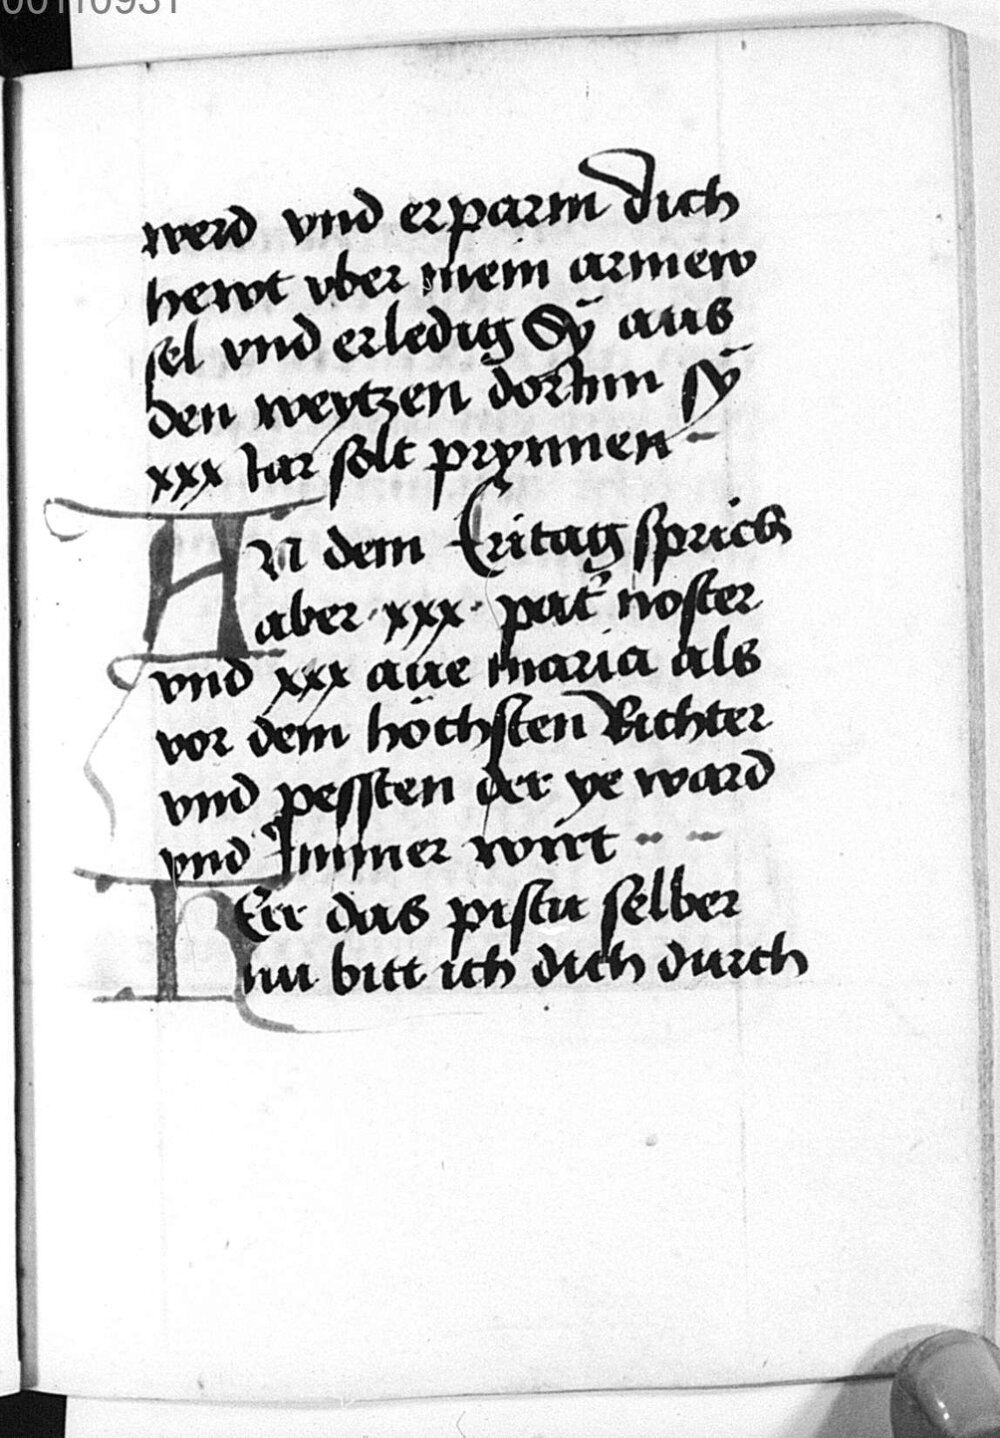 werd vnd erparm dich
hewt vber mein armew
sel vnd erledig Sÿ aus
den weytzen dorinn sÿ
xxx Iar solt prynnen
AN dem Eritag sprich
aber · xxx · pat͛ noster
vnd xxx aue maria als
vor dem höchsten Richter
vnd pessten der ye ward
vnd Immer wirt
HErr das pistu selber
nu bitt ich dich durch